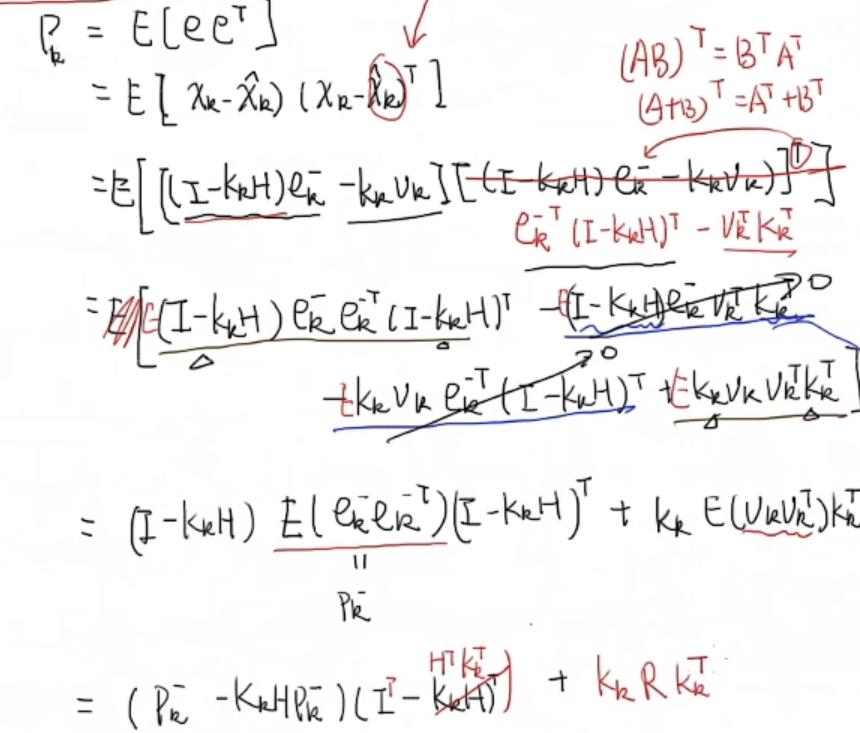 P_k = E[e e^T]
= E[ x_k - x̂_k) (x_k - x̂_k)^T ]
(AB)^T = B^T A^T
(A+B)^T = A^T + B^T
= E[ [(I - k_k H) e_k^- - k_k v_k] [(I - k_k H) e_k^- - k_k v_k)]^T ]
e_k^-T (I - k_k H)^T - v_k^T k_k^T
= E[ E(I - k_k H) e_k^- e_k^-T (I - k_k H)^T - E(I - k_k H) e_k^- v_k^T k_k^T → 0
- E k_k v_k e_k^-T (I - k_k H)^T → 0 + E k_k v_k v_k^T k_k^T ]
= (I - k_k H) E(e_k^- e_k^-T) (I - k_k H)^T + k_k E(v_k v_k^T) k_k^T
=
P_k^-
H^T k_k^T
= (P_k^- - K_k H P_k^-) (I^T - k_k H)^T) + k_k R k_k^T